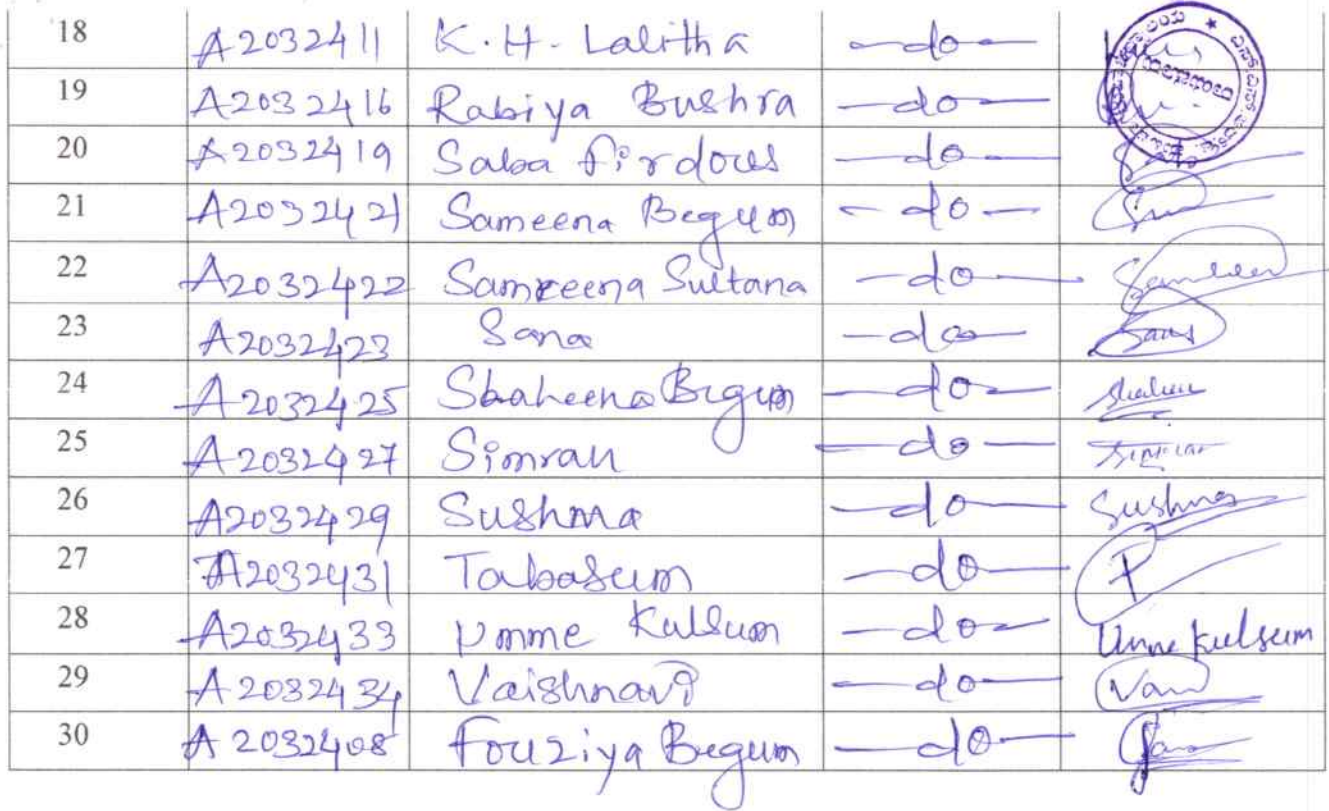 18 A2032411 K.H. Lalitha —do—
19 A2032416 Rabiya Bushra —do—
20 A2032419 Saba firdous —do—
21 A2032421 Sameena Begum —do—
22 A2032422 Samreena Sultana —do—
23 A2032423 Sana —do— Sana
24 A2032425 Shaheena Begum —do—
25 A2032427 Simran —do— Simran
26 A2032429 Sushma —do— Sushma
27 A2032431 Tabasum —do—
28 A2032433 Umme Kulsum —do— Umme Kulsum
29 A2032434 Vaishnavi —do— Vani
30 A2032408 Fouziya Begum —do—